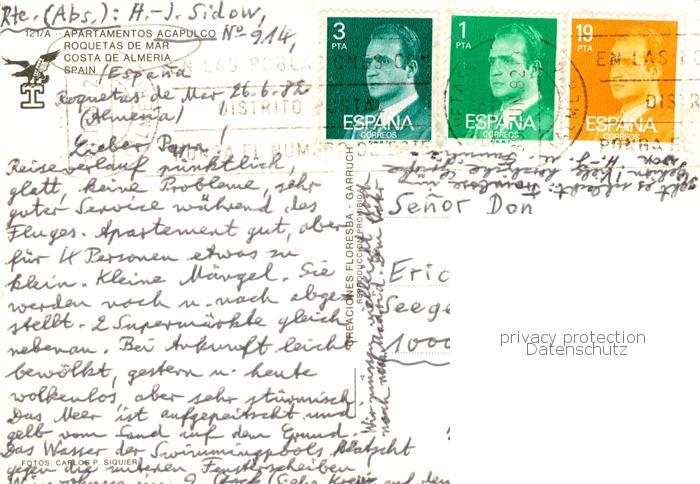 Rte. (Abs.): H.-J. Sidow,
121/A - APARTAMENTOS ACAPULCO Nº 914,
ROQUETAS DE MAR
COSTA DE ALMERIA
SPAIN / España
Roquetas de Mar 26.6.82
(Almeria)
Lieber Papa!
Reiseverlauf pünktlich,
glatt, keine Probleme, sehr
guter Service während des
Fluges. Apartement gut, aber
für 4 Personen etwas zu
klein. Kleine Mängel. Sie
werden noch u. nach abge-
stellt. 2 Supermärkte gleich
nebenan. Bei Ankunft leicht
bewölkt, gestern u. heute
wolkenlos, aber sehr stürmisch
Das Meer ist aufgepeitscht und
gelb vom Sand auf dem Grund.
Das Wasser der Swimmingpools klatscht
FOTOS: CARLOS P. SIQUIER
gegen die unteren Fensterscheiben
CREACIONES FLORESBA - GARRUCH
REPRODUCCION PROHIBIDA
3
PTA
ESPAÑA
CORREOS
1
PTA
ESPAÑA
CORREOS
19
PTA
ESPAÑA
CORREOS
EN LAS POBLA
DISTRITO
EN LAS
DISTR
Señor Don
Eric
Seege
1000
privacy protection
Datenschutz